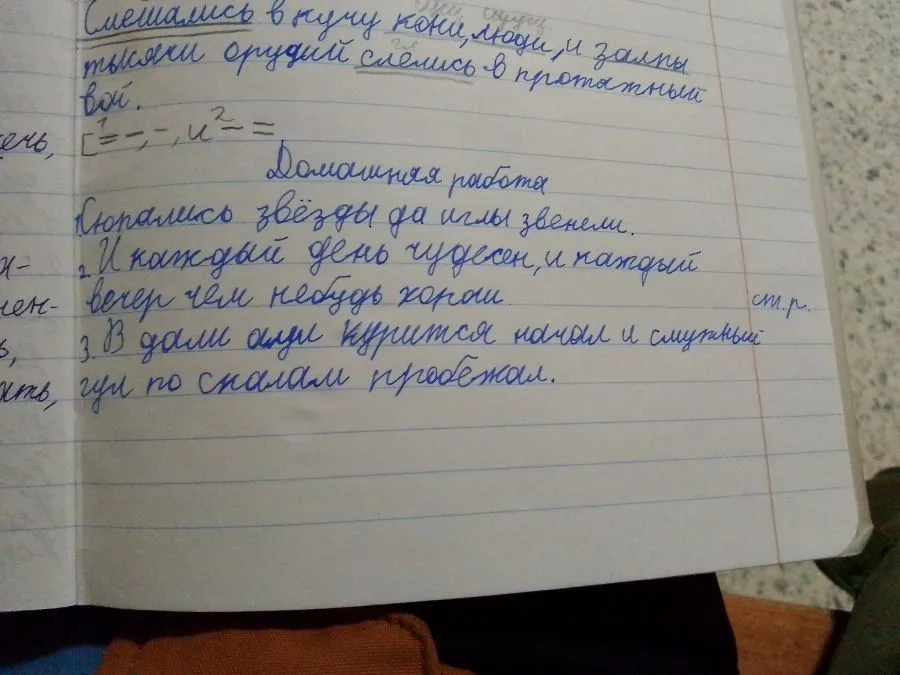 Смешались в кучу кони, люди, и залпы
тысячи орудий слелись в протяжный
вой.
ечь, [1 = –, –, и 2 – =
Домашняя работа
1. Кюпались звёзды да иглы звенели.
х- 2. И каждый день чудесен, и каждый
нен- вечер чем небудь хорош. ст.р.
ь, 3. В дали аул курится начал и смутный
ать, гул по скалам пробежал.